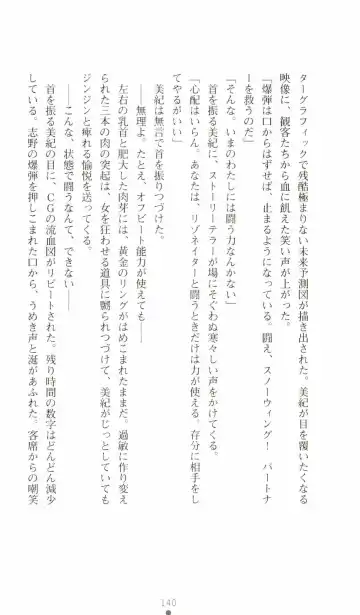 ターグラフィックで残酷極まりない未来予測図が描き出された。美紀が目を覆いたくなる
映像に、観客たちから血に飢えた笑い声が上がった。
「爆弾は口からはずせば、止まるようになっている。闘え、スノーウィング！　パートナ
ーを救うのだ」
「そんな。いまのわたしには闘う力なんかない」
首を振る美紀に、ストーリーテラーが場にそぐわぬ寒々しい声をかけてくる。
「心配はいらん。あなたは、リゾネイターと闘うときだけは力が使える。存分に相手をし
てやるがいい」
美紀は無言で首を振りつづけた。
――無理よ。たとえ、オフビート能力が使えても――
左右の乳首と肥大した肉芽には、黄金のリングがはめこまれたままだ。過敏に作り変え
られた三本の肉の突起は、女を狂わせる道具に嬲られつづけて、美紀がじっとしていても
ジンジンと痺れる愉悦を送ってくる。
――こんな、状態で闘うなんて、できない――
首を振る美紀の目に、ＣＧの流血図がリピートされた。残り時間の数字はどんどん減少
している。志野の爆弾を押しこまれた口から、うめき声と涎があふれた。客席からの嘲笑
140